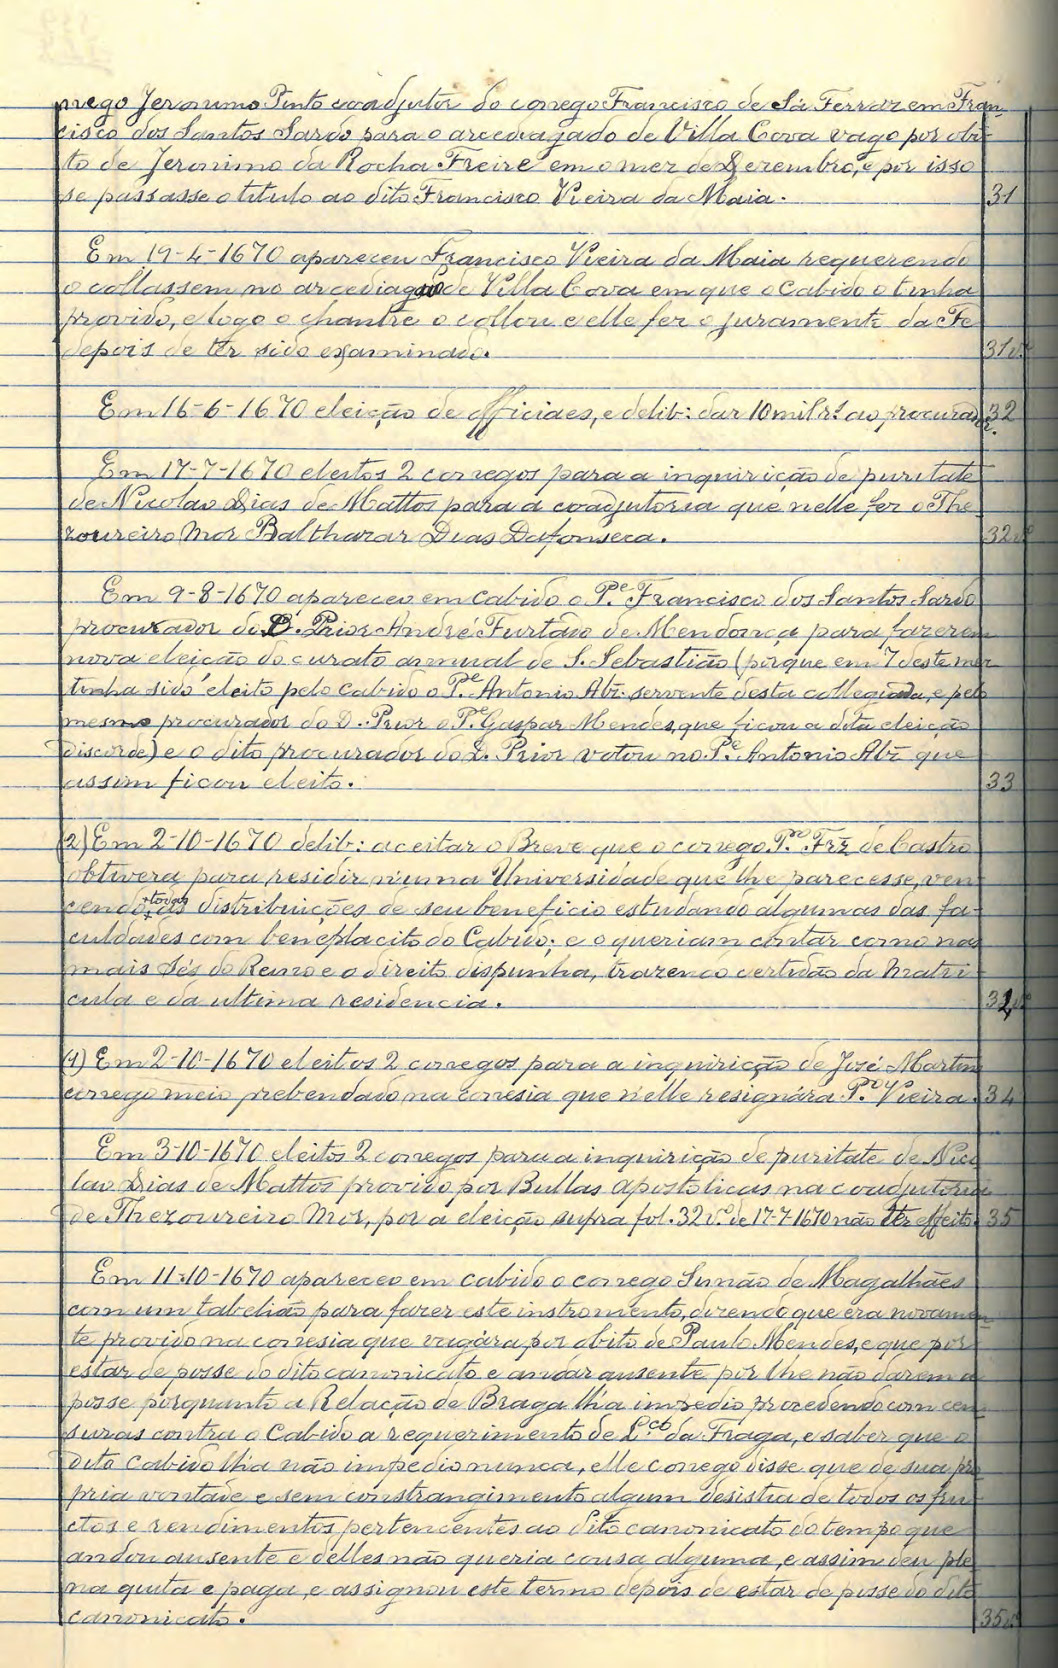 nego Jeronimo Pinto coadjutor do conego Francisco de Sá Ferraz em Fran-
cisco dos Santos Sardo para o arcediagado de Villa Cova vago por obi-
to de Jeronimo da Rocha Freire em o mez de Dezembro, e por isso
se passasse o titulo ao dito Francisco Vieira da Maia. 31
Em 19-4-1670 apareceu Francisco Vieira da Maia requerendo
o collassem no arcediagado de Villa Cova em que o Cabido o tinha
provido, e logo o chantre o collou e elle fez o juramento da Fé
depois de ter sido examinado. 31 v.º
Em 16-6-1670 eleição de officiaes, e delib: dar 10 mil r.s ao procurador. 32
Em 17-7-1670 eleitos 2 conegos para a inquirição de puritate
de Nicolao Dias de Mattos para a coadjutoria que nelle fez o The-
zoureiro Mor Balthazar Dias Dafonseca. 32 v.º
Em 9-8-1670 apareceo em Cabido o P.e Francisco dos Santos Sardo
procurador do D. Prior André Furtado de Mendonça para fazerem
nova eleição do curato annual de S. Sebastião (porque em 7 deste mez
tinha sido eleito pelo Cabido o P.e Antonio Abr. servente desta collegiada, e pelo
mesmo procurador do D. Prior o P.e Gaspar Mendes, que ficou a dita eleição
discorde) e o dito procurador do D. Prior votou no P.e Antonio Abr. que
assim ficou eleito. 33
(2) Em 2-10-1670 delib: aceitar o Breve que o conego P.o Frz de Castro
obtivera para residir n'uma Universidade que lhe parecesse, ven-
cendo +todas+ as distribuições de seu beneficio estudando algumas das fa-
culdades com beneplacito do Cabido; e o queriam contar como nas
mais Sés do Reino e o direito dispunha, trazendo certidão da Matri-
cula e da ultima residencia. 32 v.º
(1) Em 2-10-1670 eleitos 2 conegos para a inquirição de José Martins
conego meio prebendado na conesia que n'elle resignára P.o Vieira. 34
Em 3-10-1670 eleitos 2 conegos para a inquirição de puritate de Nico-
lao Dias de Mattos provido por Bullas Apostolicas na coadjutoria
de Thezoureiro Mor, por a eleição supra fol. 32 v.º de 17-7-1670 não ter effeito. 35
Em 11-10-1670 apareceo em cabido o conego Simão de Magalhães
com um tabelião para fazer este instromento, dizendo que era novamen-
te provido na conesia que vagára por obito de Paulo Mendes, e que por
estar de posse do dito canonicato e andar ausente por lhe não darem a
posse porquanto a Relação de Braga lh'a impedio procedendo com cen-
suras contra o Cabido a requerimento de L.co da Fraga, e saber que o
dito Cabido lh'a não impedio nunca, elle conego disse que de sua pro-
pria vontade e sem constrangimento algum desistia de todos os fru-
ctos e rendimentos pertencentes ao dito canonicato do tempo que
andou ausente e delles não queria cousa alguma, e assim deu ple-
na quita e paga, e assignou este termo depois de estar de posse do dito
canonicato. 35 v.º